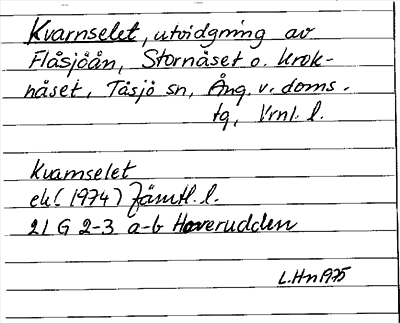 Kvarnselet, utvidgning av
Flåsjöån, Stornäset o. Krok-
näset, Tåsjö sn, Ång. v. doms.
tq, Vrnl. l.
Kvarnselet
ek (1974) Jämtl. l.
21 G 2-3 a-b Hoverudden
L.Hn 1975